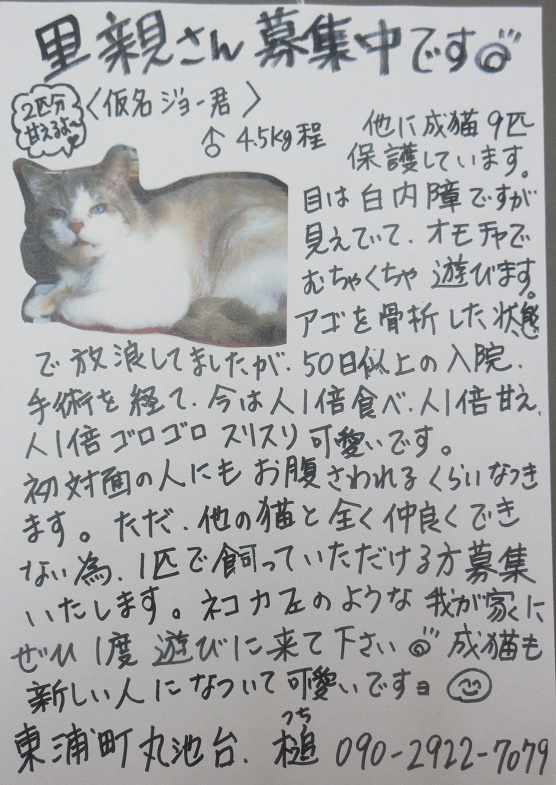 里親さん募集中です
2匹分
甘えるよ〜
〈仮名ジョー君〉
♂ 4.5kg程
他に成猫9匹
保護しています。
目は白内障ですが
見えていて、オモチャで
むちゃくちゃ遊びます。
アゴを骨折した状態
で放浪してましたが、50日以上の入院、
手術を経て、今は人1倍食べ、人1倍甘え、
人1倍ゴロゴロスリスリ可愛いです。
初対面の人にもお腹さわれるくらいなつき
ます。ただ、他の猫と全く仲良くでき
ない為、1匹で飼っていただける方募集
いたします。ネコカフェのような我が家に
ぜひ1度遊びに来て下さい 成猫も
新しい人になついて可愛いですヨ
つち
東浦町丸池台、槌 090-2922-7079